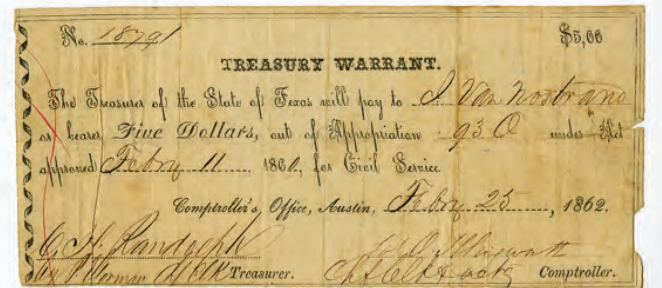 No. 18791 $5,00
TREASURY WARRANT.
The Treasurer of the State of Texas will pay to J. Van Nostrand
or bearer Five Dollars, out of Appropriation 93 under Act
approved Febry 11, 1860, for Civil Service
Comptroller's Office, Austin, Febry 25, 1862.
C. H. Randolph
Clk Treasurer. Comptroller.